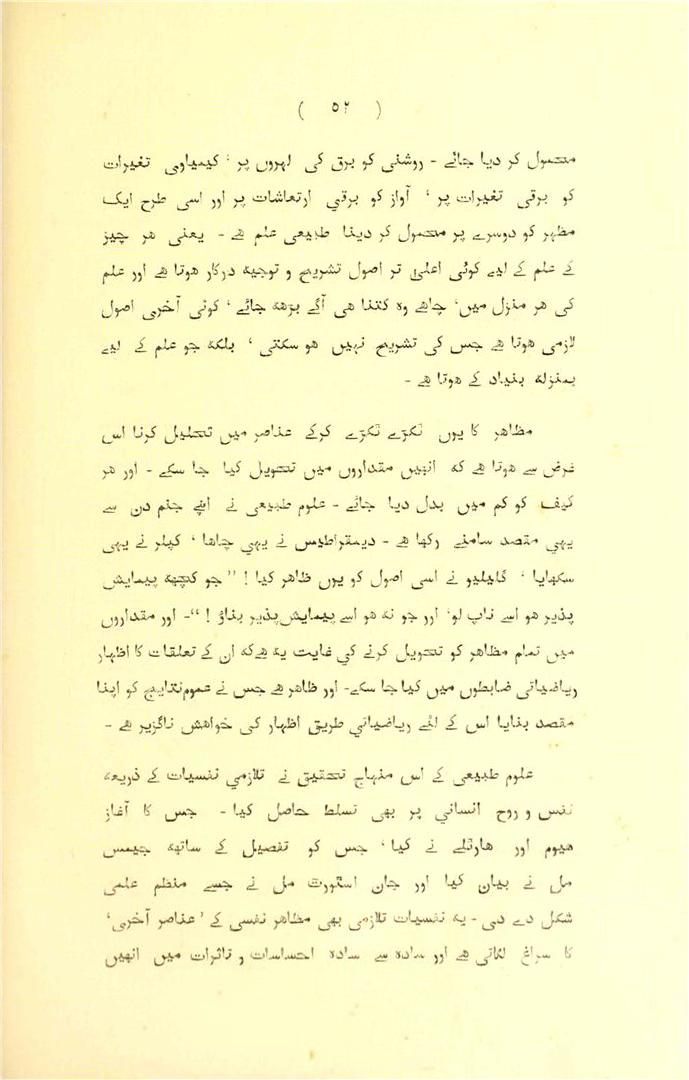 ( ٥٢ )
محمول کر دیا جائے - روشنی کو برق کی لہروں پر ' کیمیاوی تغیرات
کو برقی تغیرات پر ' آواز کو برقی ارتعاشات پر اور اسی طرح ایک
مظہر کو دوسرے پر محمول کر دینا طبیعی علم ہے - یعنی ہر چیز
کے علم کے لیے کوئی اعلیٰ تر اصول تشریح و توجیہ درکار ہوتا ہے اور علم
کی ہر منزل میں' چاہے وہ کتنا ہی آگے بڑھ جائے ' کوئی آخری اصول
لازمی ہوتا ہے جس کی تشریح نہیں ہو سکتی ' بلکہ جو علم کے لیے
بمنزلہ بنیاد کے ہوتا ہے -
مظاہر کا یوں ٹکڑے ٹکڑے کرکے عناصر میں تحلیل کرنا اس
غرض سے ہوتا ہے کہ انہیں مقداروں میں تحویل کیا جا سکے - اور ہر
کیف کو کم میں بدل دیا جائے - علوم طبیعی نے اپنے جنم دن سے
یہی مقصد سامنے رکھا ہے - دیمقراطیس نے یہی چاہا ' کپلر نے یہی
سکھایا ' گلیلیو نے اسی اصول کو یوں ظاہر کیا ! " جو کچھ پیمایش
پذیر ہو اسے ناپ لو' اور جو نہ ہو اسے پیمایش پذیر بناؤ ! "- اور مقداروں
میں تمام مظاہر کو تحویل کرنے کی غایت یہ ہے کہ ان کے تعلقات کا اظہار
ریاضیاتی ضابطوں میں کیا جا سکے - اور ظاہر ہے جس نے عموم نتایج کو اپنا
مقصد بنایا اس کے لئے ریاضیاتی طریق اظہار کی خواہش ناگزیر ہے -
علوم طبیعی کے اس منہاج تحقیق نے تلازمی نفسیات کے ذریعہ
نفس و روح انسانی پر بھی تسلط حاصل کیا - جس کا آغاز
ہیوم اور ہارٹلے نے کیا ' جس کو تفصیل کے ساتھ جیمس
مل نے بیان کیا اور جان اسٹورٹ مل نے جسے منظم علمی
شکل دے دی - یہ نفسیات تلازمی بھی مظاہر نفسی کے ' عناصر آخری '
کا سراغ لگاتی ہے اور سادہ سے سادہ احساسات و تاثرات میں انھیں